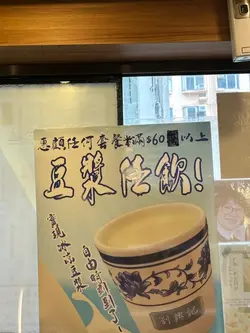 惠顧任何套餐滿$60以上
豆漿任飲!
實現冰豆漿
自由時刻到了!